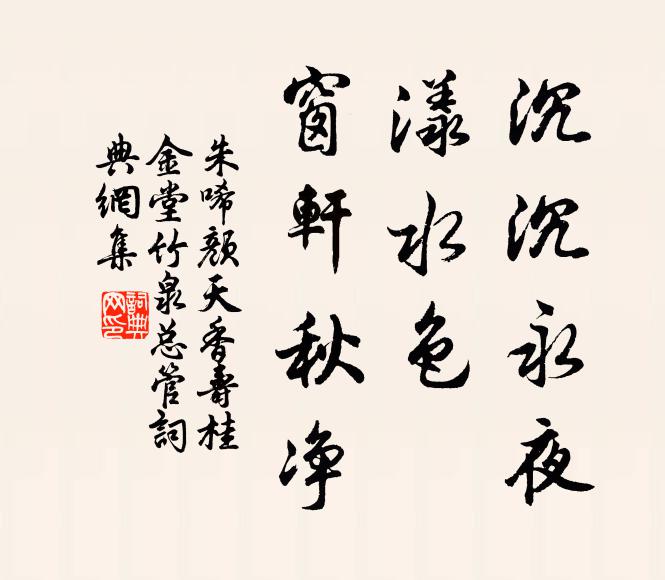 沉沉永夜
漾水色
窗軒秋净
朱唏顏天香壽桂
金堂竹泉总管詞
典網集
詞典
网印